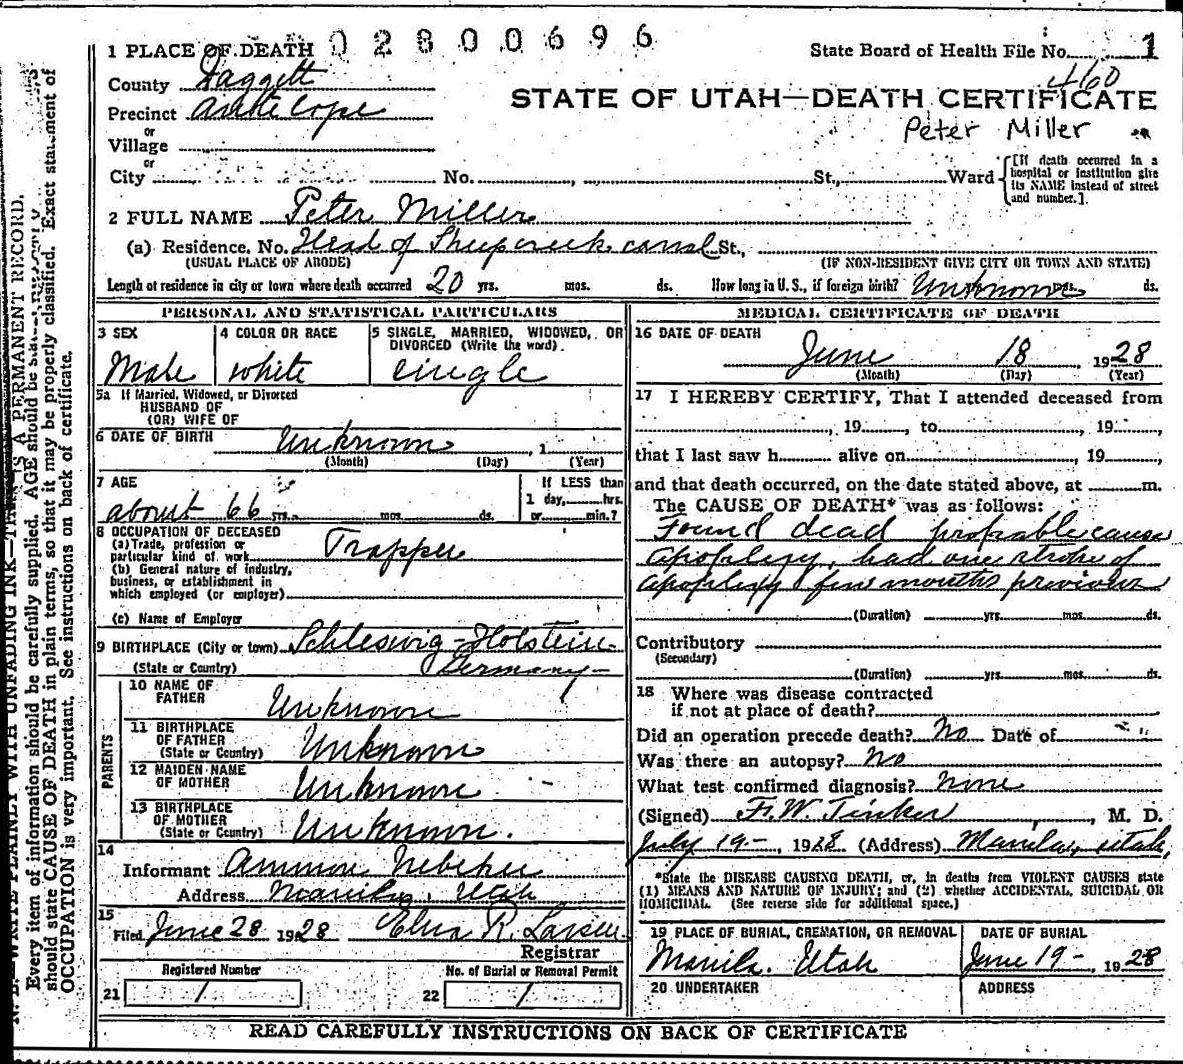 1 PLACE OF DEATH 0 2 8 0 0 6 9 6 State Board of Health File No. 1
County Daggett 460
Precinct Antelope STATE OF UTAH—DEATH CERTIFICATE
or Peter Miller
Village
or
City No. , St., Ward
[If death occurred in a
hospital or institution give
its NAME instead of street
and number.].
2 FULL NAME Peter Miller
(a) Residence. No. Head of Sheep creek canal St.,
(USUAL PLACE OF ABODE) (IF NON-RESIDENT GIVE CITY OR TOWN AND STATE)
Length of residence in city or town where death occurred 20 yrs. mos. ds. How long in U. S., if foreign birth? Unknown mos. ds.
PERSONAL AND STATISTICAL PARTICULARS
3 SEX
Male
4 COLOR OR RACE
white
5 SINGLE, MARRIED, WIDOWED, OR
DIVORCED (Write the word).
cingle
5a If Married, Widowed, or Divorced
HUSBAND OF
(OR) WIFE OF
6 DATE OF BIRTH Unknown , 1
(Month) (Day) (Year)
7 AGE
about 66 yrs. mos. ds.
If LESS than
1 day, hrs.
or min.?
8 OCCUPATION OF DECEASED
(a) Trade, profession or
particular kind of work Trapper
(b) General nature of industry,
business, or establishment in
which employed (or employer)
(c) Name of Employer
9 BIRTHPLACE (City or town) Schleswig-Holstein-
(State or Country) Germany-
PARENTS
10 NAME OF
FATHER Unknown
11 BIRTHPLACE
OF FATHER
(State or Country) Unknown
12 MAIDEN NAME
OF MOTHER Unknown
13 BIRTHPLACE
OF MOTHER
(State or Country) Unknown.
14
Informant Ammon Nebeker
Address Manila, Utah
15
Filed June 28 1928 R. Larsen
Registrar
Registered Number No. of Burial or Removal Permit
21 1 22 1
MEDICAL CERTIFICATE OF DEATH
16 DATE OF DEATH
June 18 1928
(Month) (Day) (Year)
17 I HEREBY CERTIFY, That I attended deceased from
, 19 , to , 19 ,
that I last saw h alive on , 19 ,
and that death occurred, on the date stated above, at m.
The CAUSE OF DEATH* was as follows:
Found dead probable cause
apoplexy, had one stroke of
apoplexy few months previous
(Duration) yrs. mos. ds.
Contributory
(Secondary)
(Duration) yrs. mos. ds.
18 Where was disease contracted
if not at place of death?
Did an operation precede death? No Date of
Was there an autopsy? No
What test confirmed diagnosis? none
(Signed) F. W. Tinker , M. D.
July 19-, 1928 (Address) Manila, Utah,
*State the DISEASE CAUSING DEATH, or, in deaths from VIOLENT CAUSES state
(1) MEANS AND NATURE OF INJURY; and (2) whether ACCIDENTAL, SUICIDAL OR
HOMICIDAL. (See reverse side for additional space.)
19 PLACE OF BURIAL, CREMATION, OR REMOVAL
Manila. Utah
DATE OF BURIAL
June 19-, 1928
20 UNDERTAKER ADDRESS
READ CAREFULLY INSTRUCTIONS ON BACK OF CERTIFICATE
N. B.—WRITE PLAINLY WITH UNFADING INK—THIS IS A PERMANENT RECORD.
Every item of information should be carefully supplied. AGE should be
should state CAUSE OF DEATH in plain terms, so that it may be properly classified. Exact statement of
OCCUPATION is very important. See instructions on back of certificate.